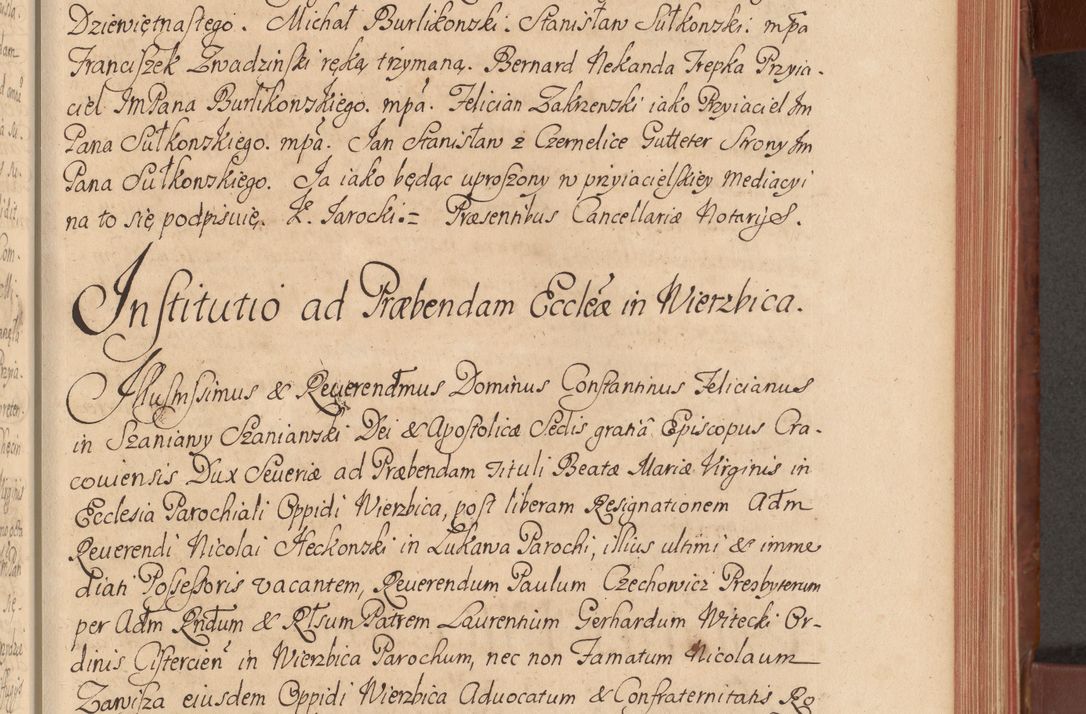 Dziewiętnastego. Michał Burlikowski. Stanisław Sułkowski. mpa
Franciszek Zwadzinski ręką trzymaną. Bernard Nekanda Trepka Przyia-
ciel JmPana Burlikowskiego. mpa. Felician Zakrzewski iako Przyiaciel Jm
Pana Sułkowskiego. mpa. Jan Stanisław z Czernelice Gutteter Strony Jm
Pana Sułkowskiego. Ja iako będąc uproszony w przyiacielskiey Mediacyi
na to się podpisuię. K. Jarocki.= Præsentibus Cancellariæ Notarijs.
Institutio ad Præbendam Eccleæ in Wierzbica.
Jllustrissimus & Reuerendmus Dominus Constantinus Felicianus
in Szaniawy Szaniawski Dei & Apostolicæ Sedis gratiâ Episcopus Cra-
couiensis Dux Seueriæ ad Præbendam Tituli Beatæ Mariæ Virginis in
Ecclesia Parochiali Oppidi Wierzbica, post liberam Resignationem Adm
Reuerendi Nicolai Heckowski in Lukawa Parochi, illius ultimi & imme
diati Possessoris vacantem, Reuerendum Paulum Czechowicz Presbyterum
per Adm Rndum & Rlsum Patrem Laurentium Gerhardum Witecki Or-
dinis Cistercien in Wierzbica Parochum, nec non Famatum Nicolaum
Zawisza eiusdem Oppidi Wierzbica Aduocatum & Confraternitatis Ro